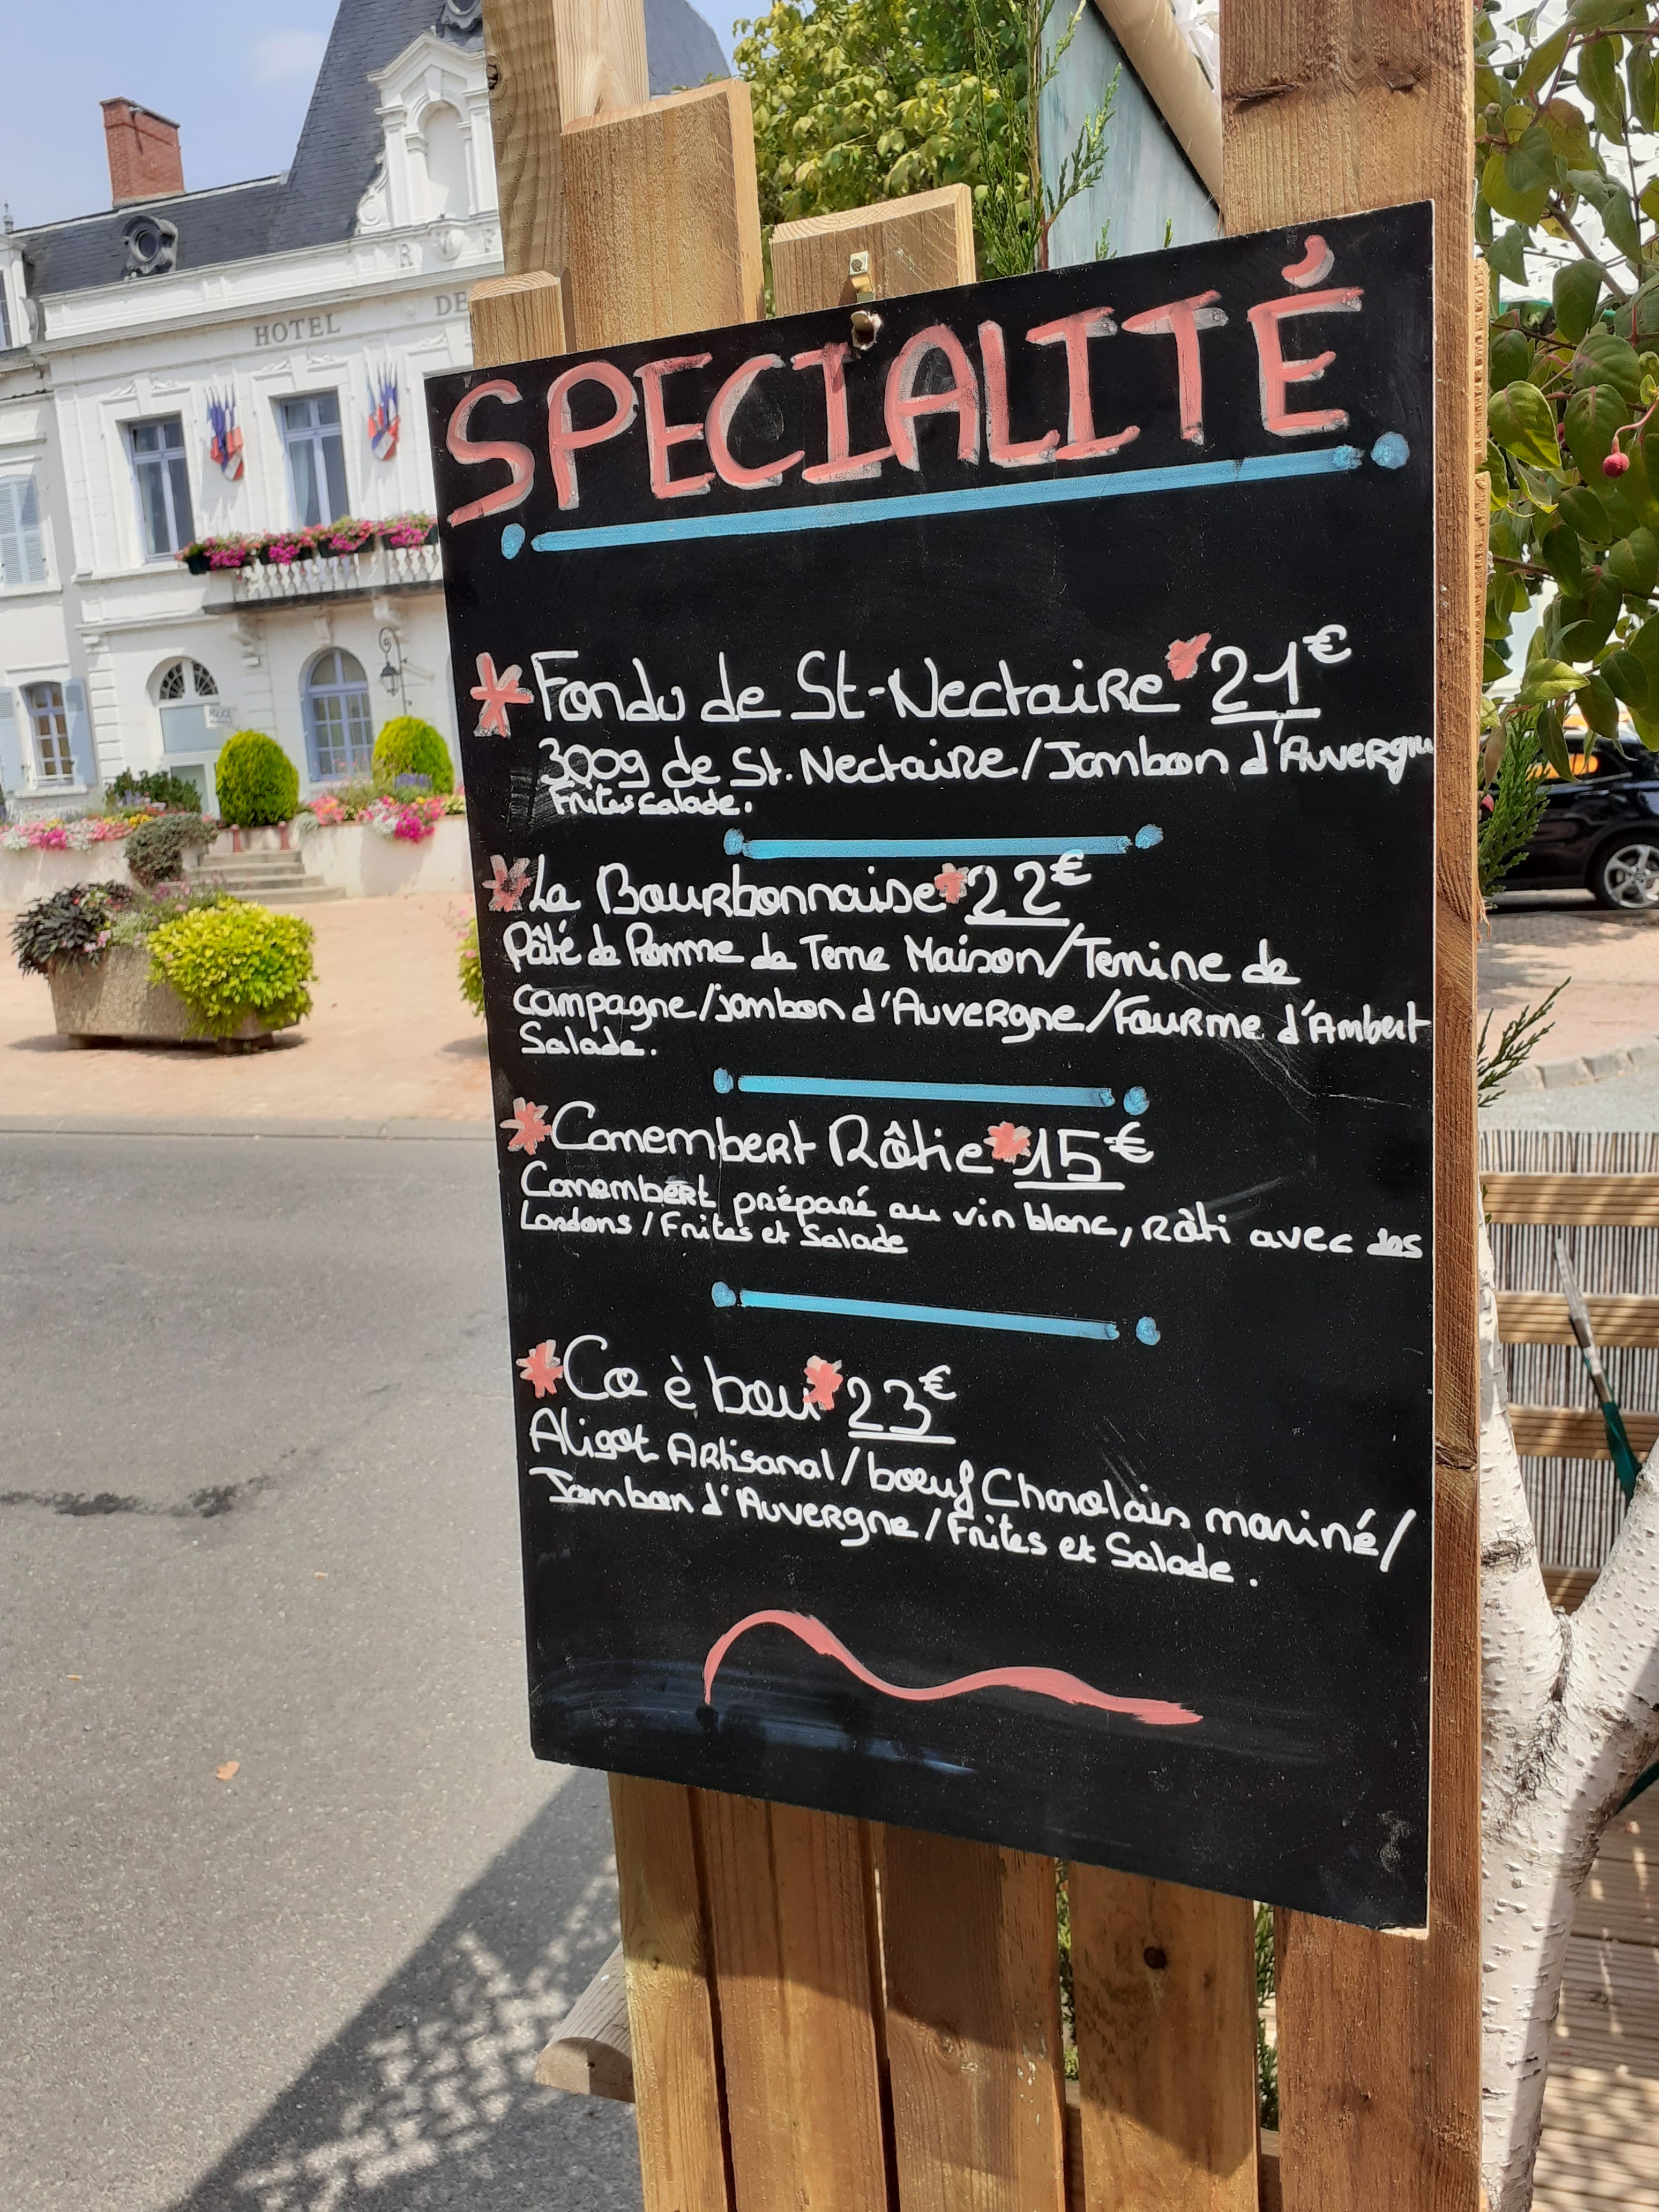 HOTEL DE
R V F
SPECIALITÉ
Fondu de St-Nectaire 21€
300g de St. Nectaire/Jambon d'Auvergne
Frites Salade.
La Bourbonnaise 22€
Pâté de Pomme de Terre Maison/Terrine de
campagne/jambon d'Auvergne/Fourme d'Ambert
Salade.
Camembert Râtie 15€
Camembert préparé au vin blanc, râti avec des
Lardons/Frites et Salade
Ca è bau 23€
Aligot Artisanal/bœuf Charolais mariné/
Jambon d'Auvergne/Frites et Salade.